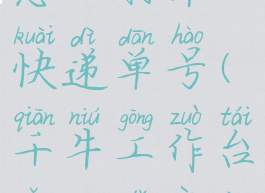 kuài dì dān hào
快递单号(
qiān niú gōng zuò tái
千牛工作台